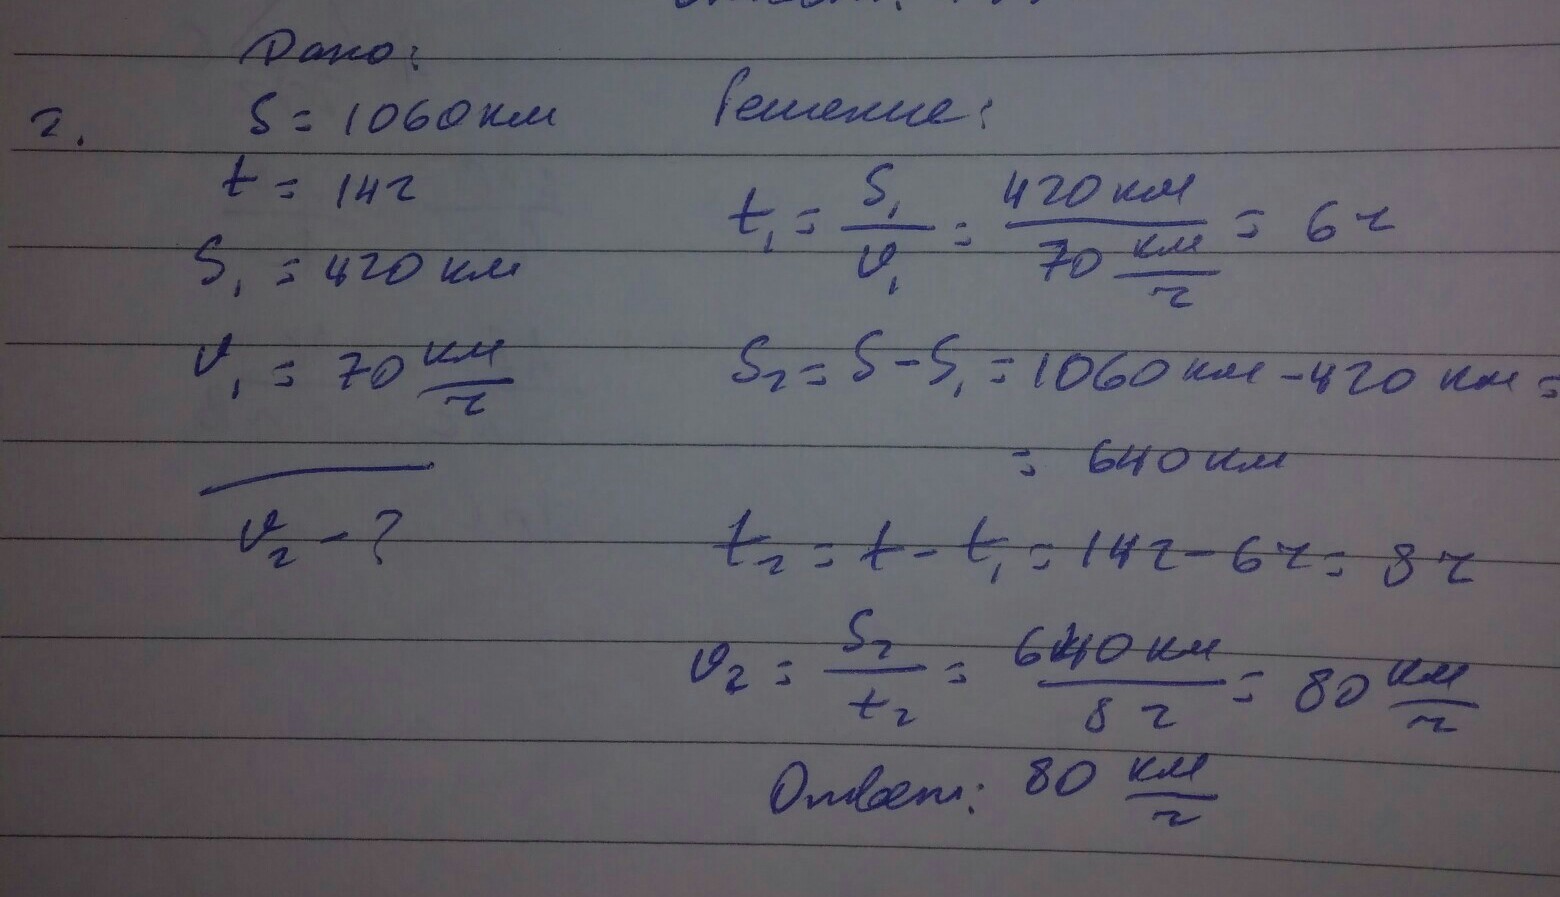 Дано:
2.
S = 1060 км
t = 14 ч
S₁ = 420 км
v₁ = 70 км/ч
v₂ - ?
Решение:
t₁ = S₁/v₁ = 420 км / 70 км/ч = 6 ч
S₂ = S - S₁ = 1060 км - 420 км =
= 640 км
t₂ = t - t₁ = 14 ч - 6 ч = 8 ч
v₂ = S₂/t₂ = 640 км / 8 ч = 80 км/ч
Ответ: 80 км/ч